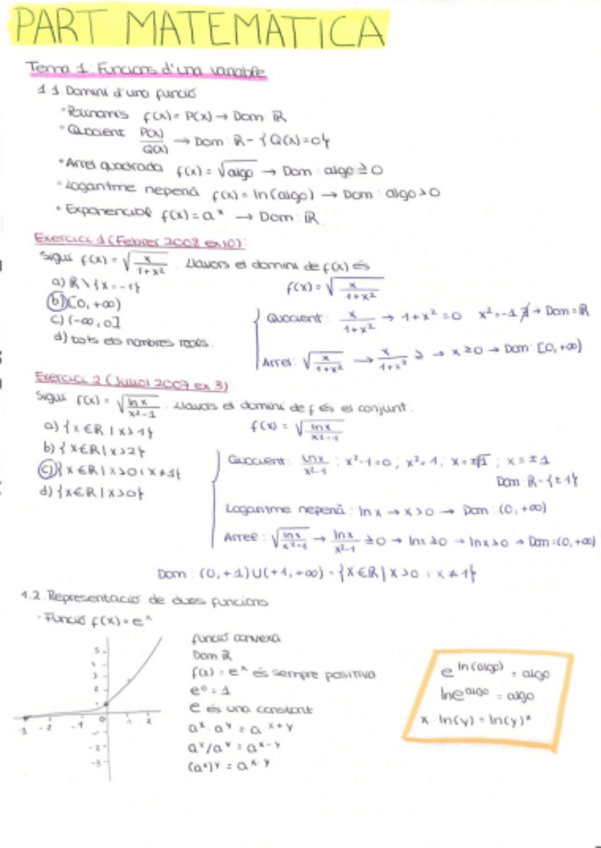 PART MATEMÀTICA
Tema 1: Funcions d'una variable
1.1 Domini d'una funció
• Polinomis f(x) = P(x) → Dom ℝ
• Quocient P(x)/Q(x) → Dom: ℝ - {Q(x)=0}
• Arrel quadrada f(x) = √algo → Dom: algo ≥ 0
• Logaritme neperià f(x) = ln(algo) → Dom: algo > 0
• Exponencial f(x) = aˣ → Dom: ℝ.
Exercici 1 (Febrer 2008 ex10):
Sigui f(x) = √(x/(1+x²)). Llavors el domini de f(x) és
a) ℝ \ {x = -1}
f(x) = √(x/(1+x²))
b) [0, +∞)
c) (-∞, 0]
d) tots els nombres reals.
Quocient: x/(1+x²) → 1+x² = 0 x² = -1 ∄ → Dom = ℝ
Arrel: √(x/(1+x²)) → x/(1+x²) ≥ → x ≥ 0 → Dom: [0, +∞)
Exercici 2 (Juliol 2007 ex 3)
Sigui f(x) = √(ln x/(x²-1)). Llavors el domini de f és el conjunt.
a) {x ∈ ℝ | x > 1}
f(x) = √(ln x/(x²-1))
b) {x ∈ ℝ | x > 2}
c) {x ∈ ℝ | x > 0 i x ≠ 1}
d) {x ∈ ℝ | x > 0}
Quocient: ln x/(x²-1) ; x²-1=0 ; x²=1 ; x=±√1 ; x = ±1
Dom ℝ - {±1}
Logaritme neperià: ln x → x > 0 → Dom: (0, +∞)
Arrel: √(ln x/(x²-1)) → ln x/(x²-1) ≥ 0 → ln x ≥ 0 → ln x > 0 → Dom = (0, +∞)
Dom: (0, +1) ∪ (+1, +∞) = {x ∈ ℝ | x > 0 i x ≠ 1}
1.2. Representació de dues funcions
• Funció f(x) = eˣ
funció convexa
Dom ℝ
f(x) = eˣ és sempre positiva
e⁰ = 1
e és una constant
aˣ · aʸ = aˣ⁺ʸ
aˣ/aʸ = aˣ⁻ʸ
(aˣ)ʸ = aˣ·ʸ
e^ln(algo) = algo
ln e^algo = algo
x · ln(y) = ln(y)ˣ